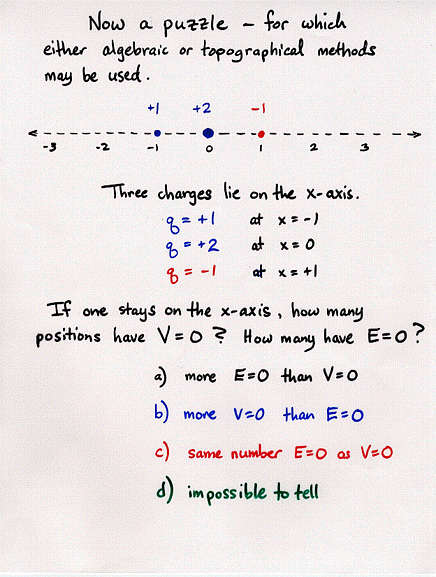 Now a puzzle – for which
either algebraic or topographical methods
may be used.
+1 +2 -1
-3 -2 -1 0 1 2 3
Three charges lie on the x-axis.
q = +1 at x = -1
q = +2 at x = 0
q = -1 at x = +1
If one stays on the x-axis, how many
positions have V=0? How many have E=0?
a) more E=0 than V=0
b) more V=0 than E=0
c) same number E=0 as V=0
d) impossible to tell